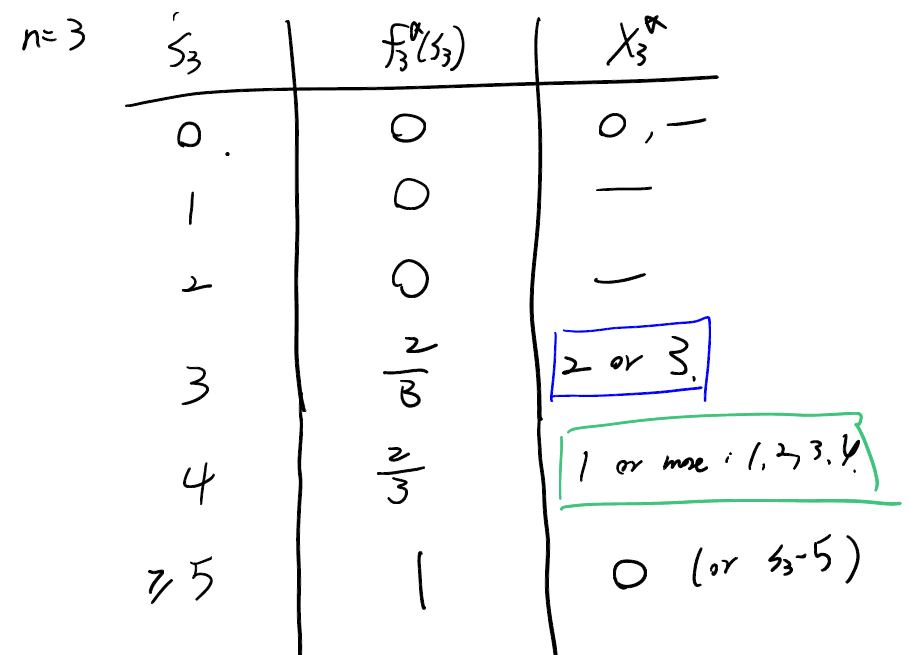 n=3 S₃ f₃*(S₃) X₃*
0. 0 0, —
1 0 —
2 0 —
3 2/3 2 or 3.
4 2/3 1 or more : 1, 2, 3, 4.
≥ 5 1 0 (or S₃-5)